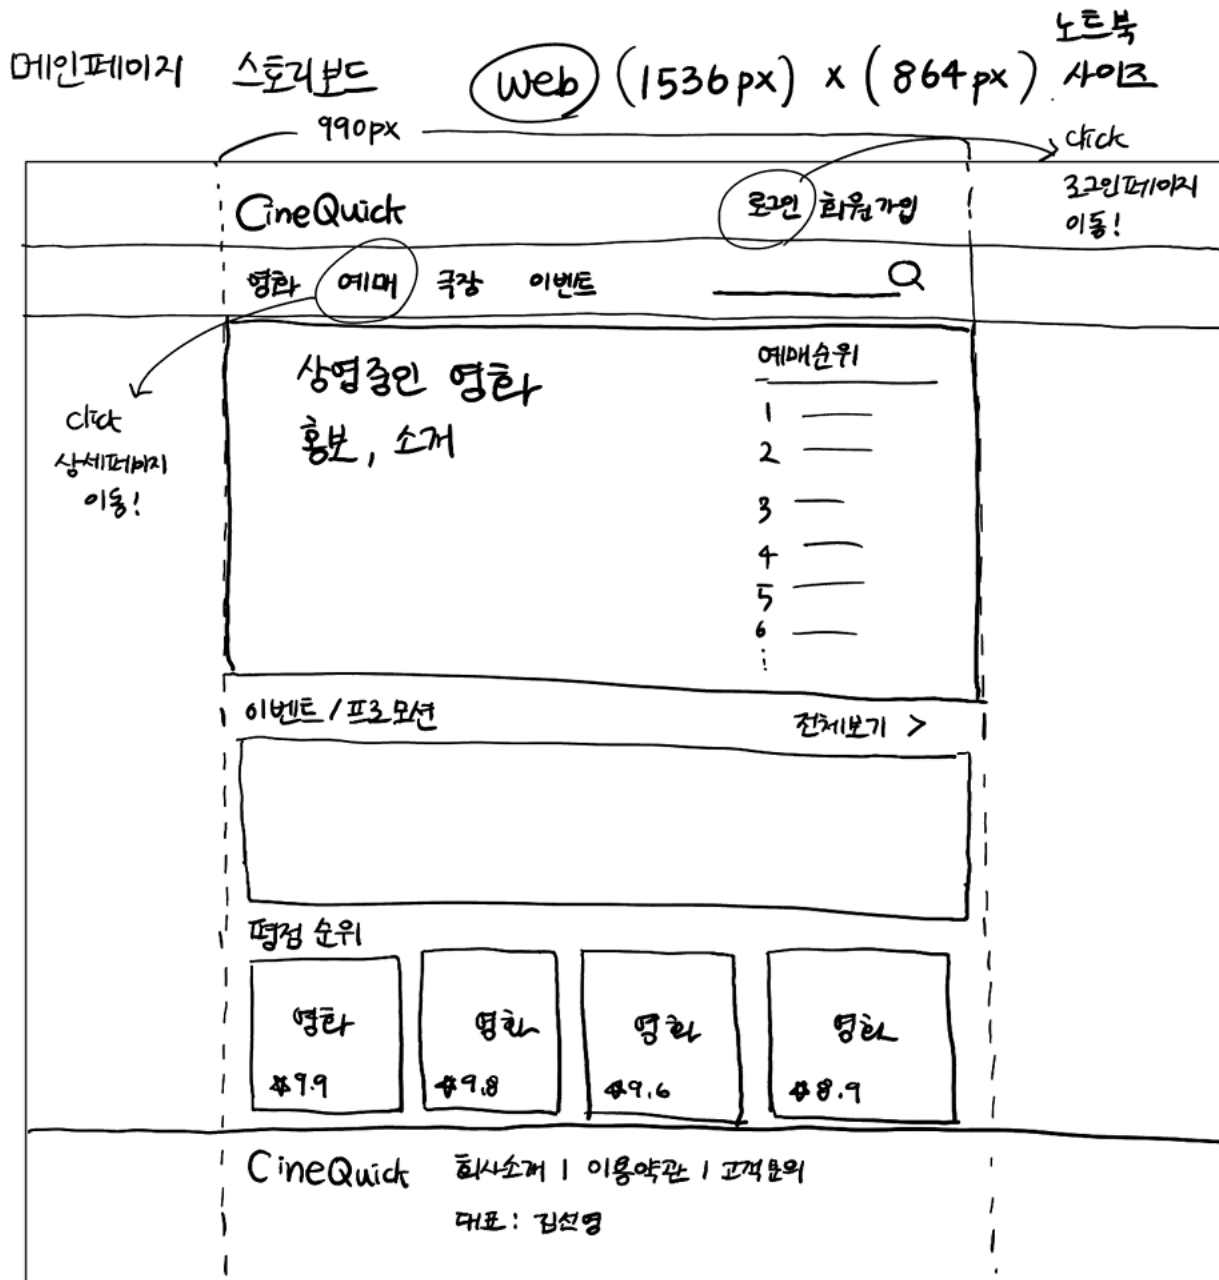 메인페이지 스토리보드 Web (1536px) x (864px) 노트북 사이즈
990px
click
로그인페이지
이동!
CineQuick 로그인 회원가입
영화 예매 극장 이벤트
click
상세페이지
이동!
상영중인 영화
홍보, 소개
예매순위
1
2
3
4
5
6
⋮
이벤트/프로모션 전체보기 >
평점 순위
영화 영화 영화 영화
☆9.9 ☆9.8 ☆9.6 ☆8.9
CineQuick 회사소개 | 이용약관 | 고객문의
대표 : 김선영